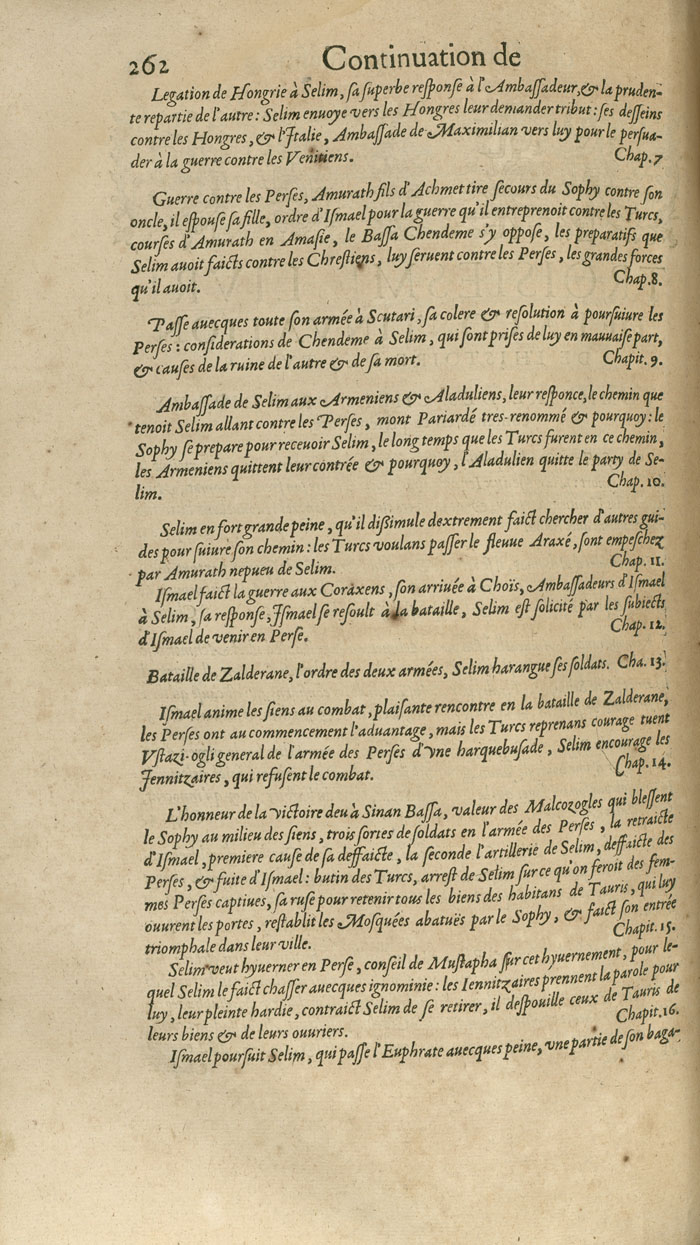 262 Continuation de
Legation de Hongrie à Selim, sa superbe response à l'Ambassadeur, & la pruden-
te repartie de l'autre: Selim enuoye vers les Hongres leur demander tribut: ses desseins
contre les Hongres, & l'Italie, Ambassade de Maximilian vers luy pour le persua-
der à la guerre contre les Venitiens. Chap. 7
Guerre contre les Perses, Amurath fils d'Achmet tire secours du Sophy contre son
oncle, il espouse sa fille, ordre d'Ismael pour la guerre qu'il entreprenoit contre les Turcs,
courses d'Amurath en Amasie, le Bassa Chendeme s'y oppose, les preparatifs que
Selim auoit faicts contre les Chrestiens, luy seruent contre les Perses, les grandes forces
qu'il auoit. Chap. 8.
Passe auecques toute son armée à Scutari, sa colere & resolution à poursuiure les
Perses: considerations de Chendeme à Selim, qui sont prises de luy en mauuaise part,
& causes de la ruine de l'autre & de sa mort. Chapit. 9.
Ambassade de Selim aux Armeniens & Aladuliens, leur responce, le chemin que
tenoit Selim allant contre les Perses, mont Pariardé tres-renommé & pourquoy: le
Sophy se prepare pour receuoir Selim, le long temps que les Turcs furent en ce chemin,
les Armeniens quittent leur contrée & pourquoy, l'Aladulien quitte le party de Se-
lim. Chap. 10.
Selim en fort grande peine, qu'il dissimule dextrement faict chercher d'autres gui-
des pour suiure son chemin: les Turcs voulans passer le fleuue Araxé, sont empeschez
par Amurath nepueu de Selim. Chap. 11.
Ismael faict la guerre aux Coraxens, son arriuée à Choïs, Ambassadeurs d'Ismael
à Selim, sa response, Ismael se resoult à la bataille, Selim est solicité par les subiects
d'Ismael de venir en Perse. Chap. 12.
Bataille de Zalderane, l'ordre des deux armées, Selim harangue ses soldats. Cha. 13.
Ismael anime les siens au combat, plaisante rencontre en la bataille de Zalderane,
les Perses ont au commencement l'aduantage, mais les Turcs reprenans courage tuent
Vstazi-ogli general de l'armée des Perses d'vne harquebusade, Selim encourage les
Jennitzaires, qui refusent le combat. Chap. 14.
L'honneur de la victoire deu à Sinan Bassa, valeur des Malcozogles qui blessent
le Sophy au milieu des siens, trois sortes de soldats en l'armée des Perses, la retraicte
d'Ismael, premiere cause de sa deffaicte, la seconde l'artillerie de Selim, deffaicte des
Perses, & fuite d'Ismael: butin des Turcs, arrest de Selim sur ce qu'on feroit des fem-
mes Perses captiues, sa ruse pour retenir tous les biens des habitans de Tauris, qui luy
ouurent les portes, restablit les Mosquées abatuës par le Sophy, & faict son entrée
triomphale dans leur ville. Chapit. 15.
Selim veut hyuerner en Perse, conseil de Mustapha sur cet hyuernement, pour le-
quel Selim le faict chasser auecques ignominie: les Iennitzaires prennent la parole pour
luy, leur pleinte hardie, contraict Selim de se retirer, il despouille ceux de Tauris de
leurs biens & de leurs ouuriers. Chapit. 16.
Ismael poursuit Selim, qui passe l'Euphrate auecques peine, vne partie de son baga-